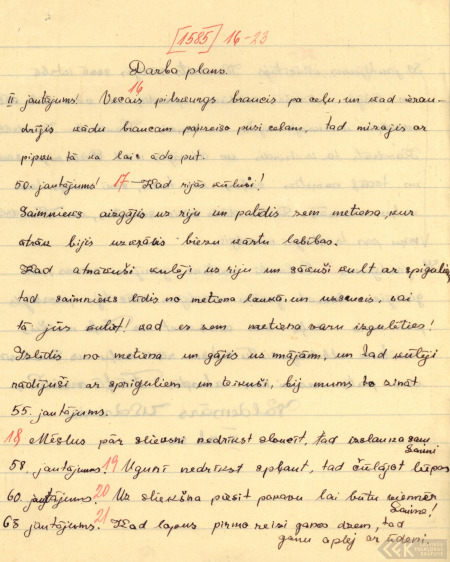 [1585] 16-23
Darba plāns.
16
II jautājums! Vecais pilskungs braucis pa ceļu, un kad ierau-
dzījis kādu braucam papreiso pusi ceļam, tad mizojis ar
pipku tā ka lai āda put.
50. jautājums! 17 Kad rijās kūluši!
Saimnieks aizgājis uz riju un palīdis zem metiena, kur
bijis uzkrāts biezu kārtu labības.
Kad atnākuši kulēji uz riju un sākuši kult ar spigaliem,
tad saimnieks līdis no metiena laukā, un uzsaucis, vai
tā jūs kulat! kad es zem metiena varu izgulēties!
Izlīdis no metiena un gājis uz mājām, un tad kūlēji
rādījuši ar spriguliem un teikuši, bij mums to zināt
55. jautājums.
18 Mēslus pār slieksni nedrīkst slaucīt, tad izslauka sau
laimi
58. jautājums 19 Ugunī nedrīkst spļaut, tad čūlājot lūpas
60. jautājums. 20 Uz sliekšņa piesit pakavu lai būtu vienmēr
Laime!
63 jautājums. 21 Kad lopus pirmo reizi ganos dzem, tad
ganu aplej ar ūdeni.